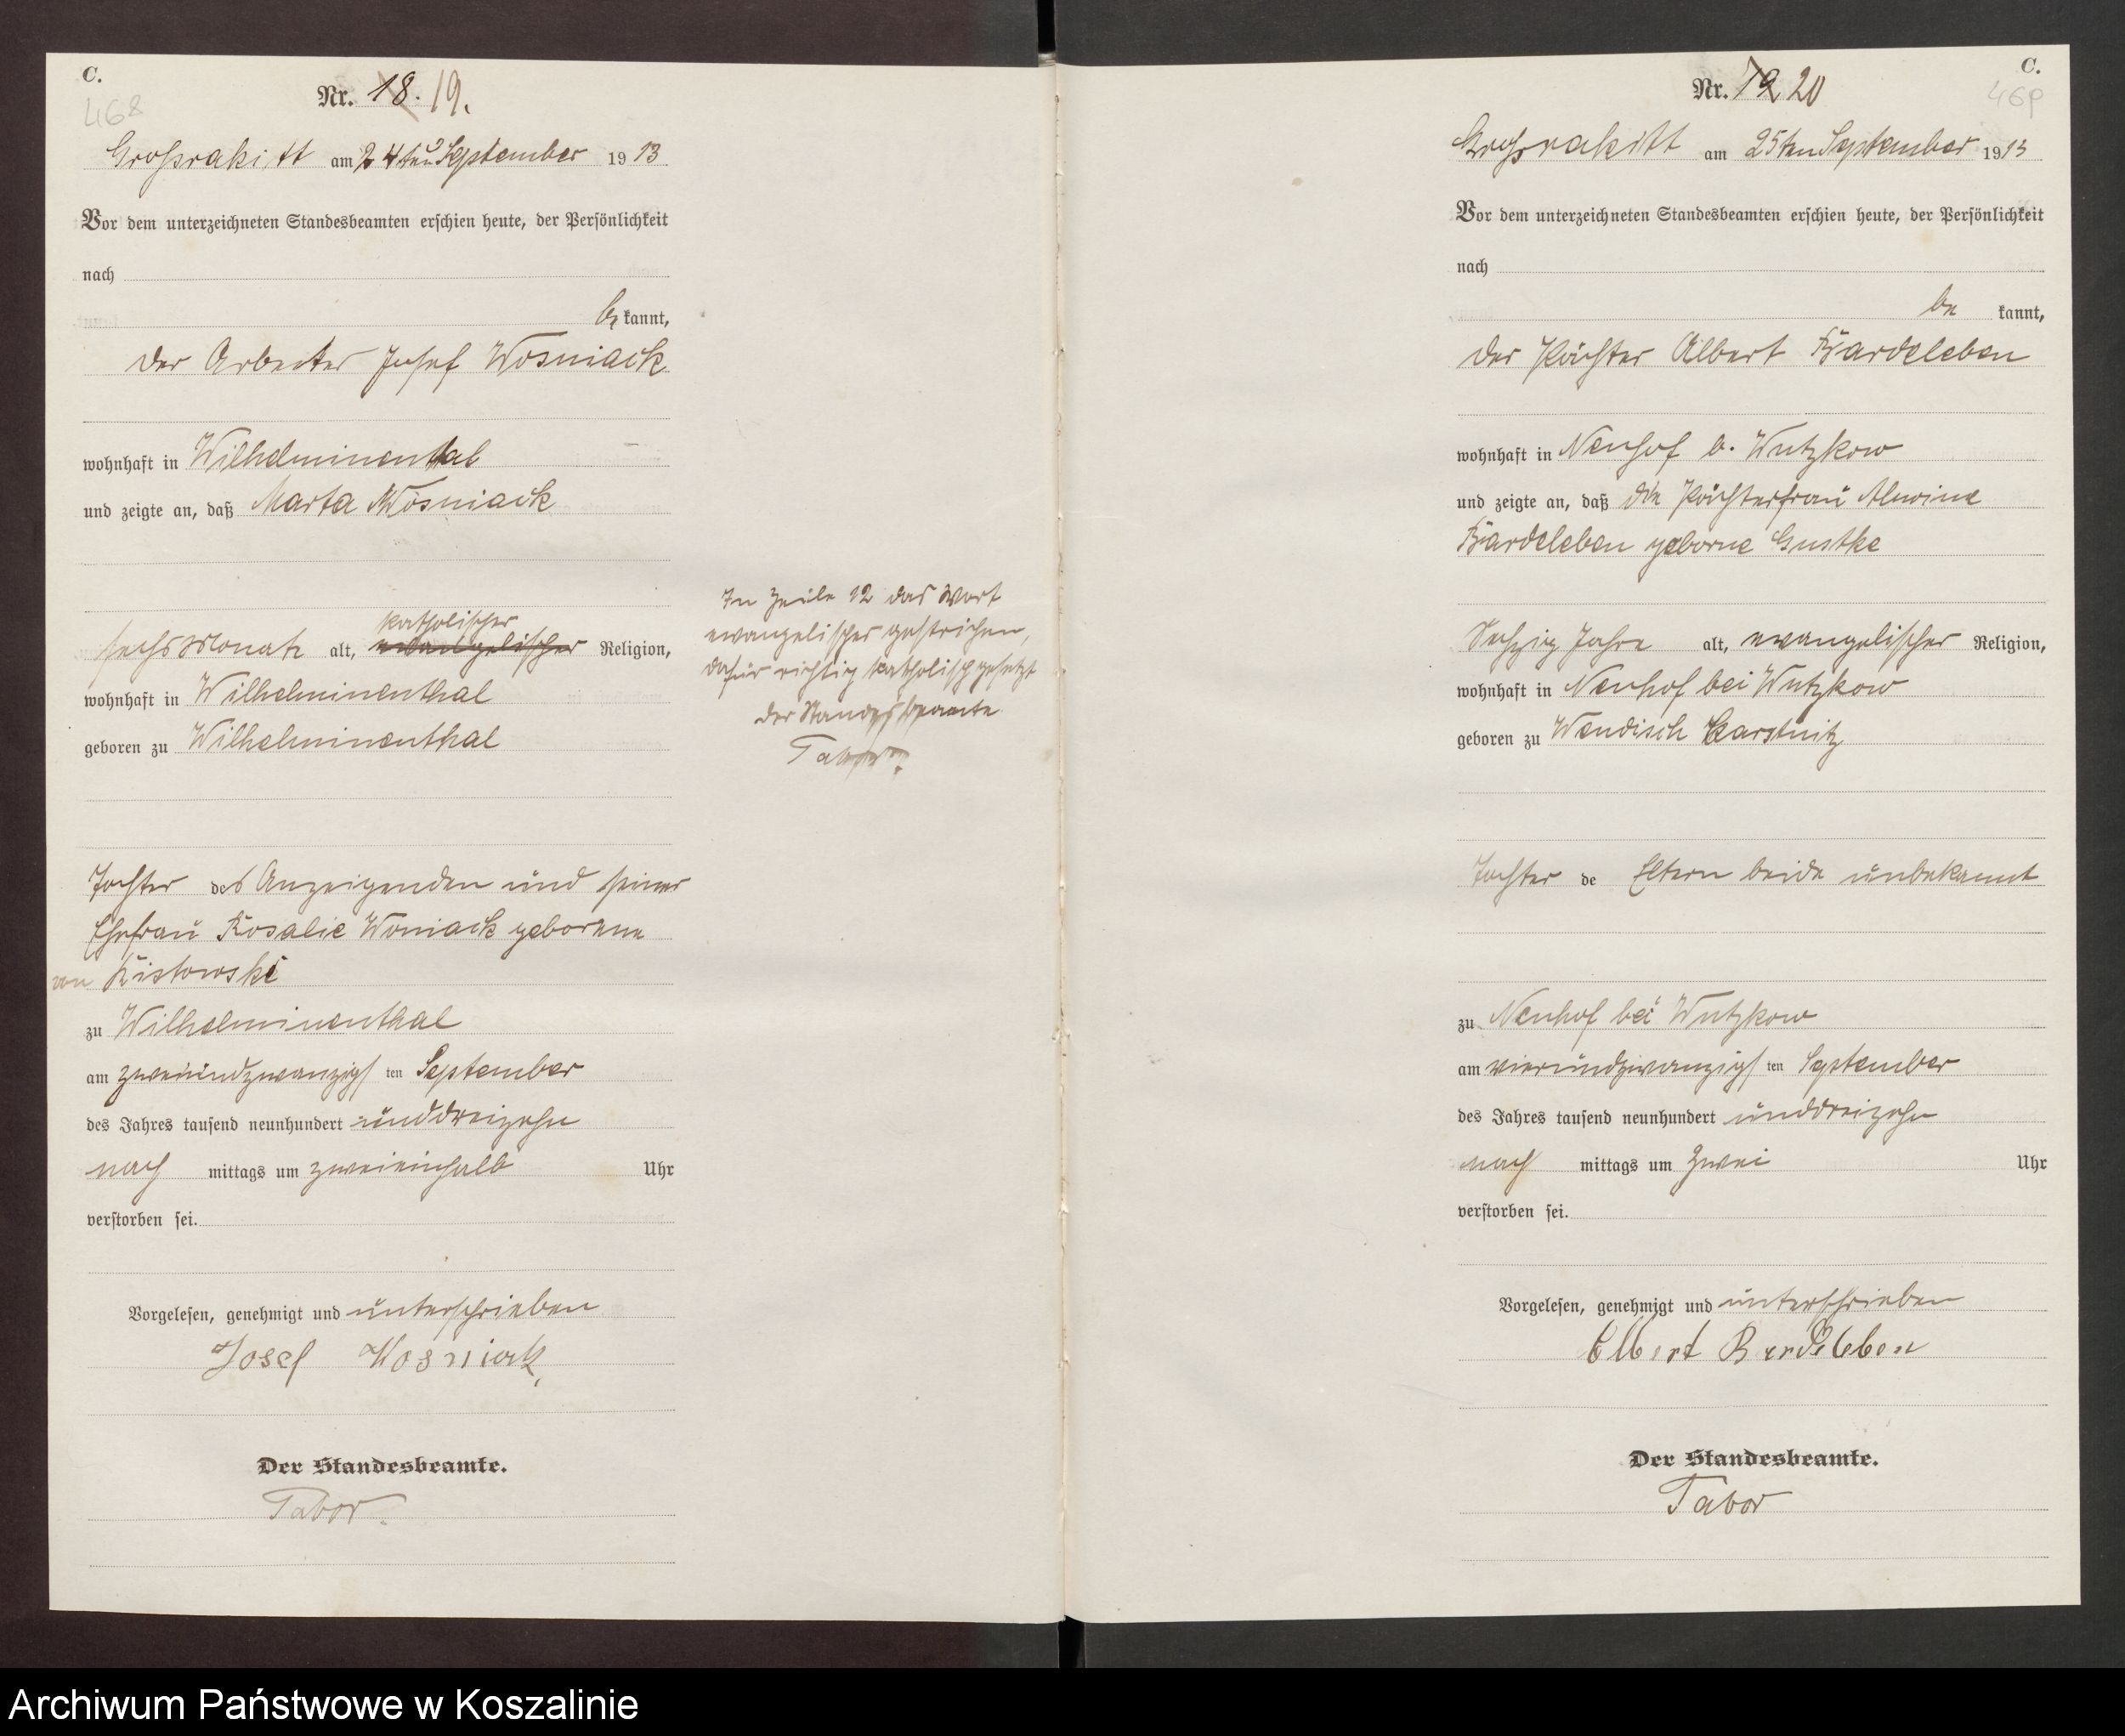 C.
468
Nr. 18. 19.
Großrakitt am 24ten September 1913
Vor dem unterzeichneten Standesbeamten erschien heute, der Persönlichkeit
nach
be kannt,
der Arbeiter Josef Wosniack
wohnhaft in Wilhelminenthal
und zeigte an, daß Marta Wosniack
katholischer
sechs Monate alt, evangelischer Religion,
wohnhaft in Wilhelminenthal
geboren zu Wilhelminenthal
Tochter des Anzeigenden und seiner
Ehefrau Rosalie Woniack geborene
von Kistowski
zu Wilhelminenthal
am zweiundzwanzigs ten September
des Jahres tausend neunhundert unddreizehn
nach mittags um zweieinhalb Uhr
verstorben sei.
Vorgelesen, genehmigt und unterschrieben
Josef Wosniack
Der Standesbeamte.
Tabor.
In Zeile 12 das Wort
evangelischer gestrichen,
dafür richtig katholisch gesetzt
Der Standesbeamte
Tabor.
C.
469
Nr. 19 20
Großrakitt am 25ten September 1913
Vor dem unterzeichneten Standesbeamten erschien heute, der Persönlichkeit
nach
be kannt,
der Pächter Albert Bardeleben
wohnhaft in Neuhof b. Wutzkow
und zeigte an, daß die Pächterfrau Alwine
Bardeleben geborne Gustke
Sechzig Jahre alt, evangelischer Religion,
wohnhaft in Neuhof bei Wutzkow
geboren zu Wendisch Karstnitz
Tochter de Eltern beide unbekannt
zu Neuhof bei Wutzkow
am vierundzwanzigs ten September
des Jahres tausend neunhundert unddreizehn
nach mittags um Zwei Uhr
verstorben sei.
Vorgelesen, genehmigt und unterschrieben
Albert Bardeleben
Der Standesbeamte.
Tabor
Archiwum Państwowe w Koszalinie